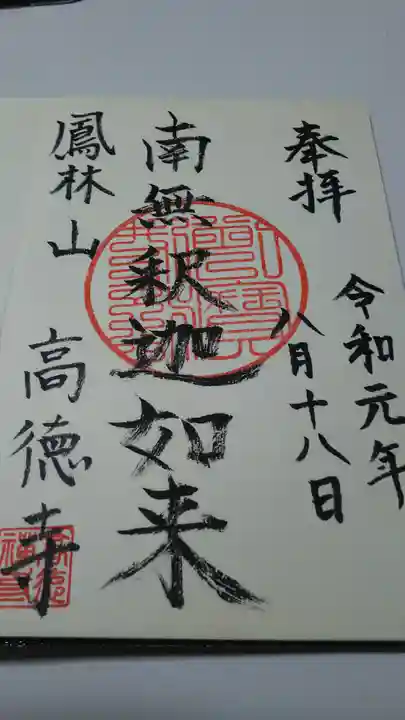 奉拝
令和元年
八月十八日
南無釈迦如来
鳳林山
高徳寺